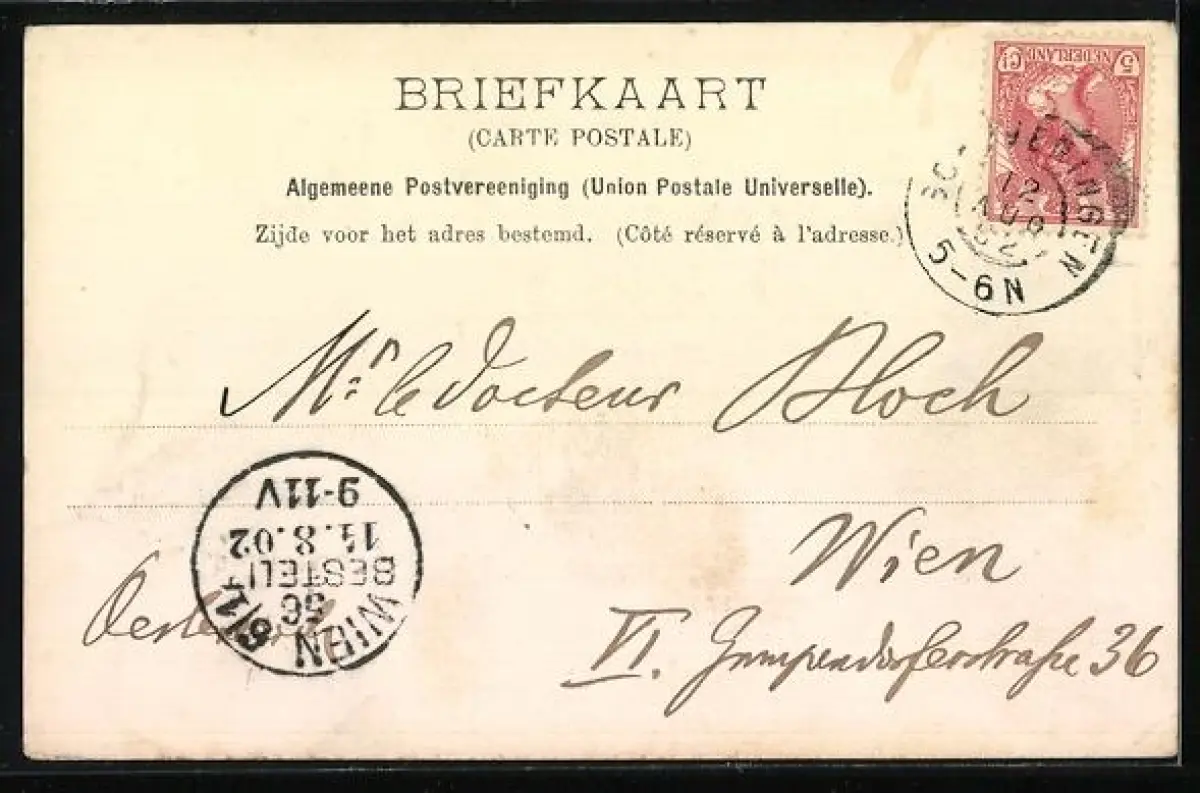 5 NEDERLAND Ct
BRIEFKAART
(CARTE POSTALE)
Algemeene Postvereeniging (Union Postale Universelle).
Zijde voor het adres bestemd. (Côté réservé à l'adresse.)
12
AUG
02
5-6N
Mr. le Docteur Bloch
Wien
VI. Gumpendorferstraße 36
9-11V
14.8.02
BESTELLT
56
WIEN 6/1